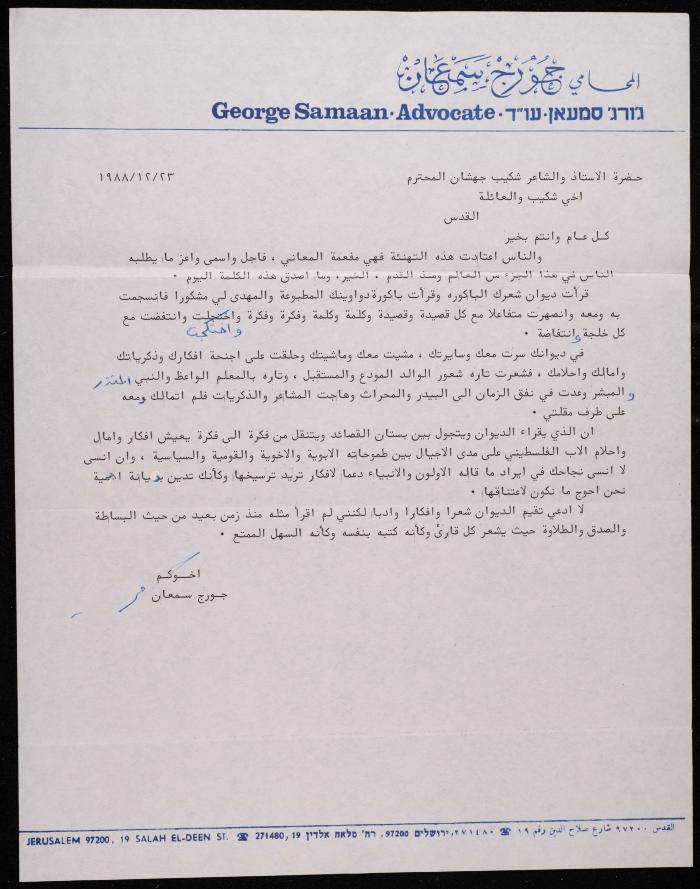 المحامي جورج سمعان
George Samaan · Advocate · ג'ורג' סמעאן · עו"ד
حضرة الاستاذ والشاعر شكيب جهشان المحترم ١٩٨٨/١٢/٢٣
اخي شكيب والعائلة
القدس
كل عام وانتم بخير
والناس اعتادت هذه التهنئة فهي مفعمة المعاني ، فاجل واسمى واعز ما يطلبه
الناس في هذا الجزء من العالم ومنذ القدم ، الخير، وما اصدق هذه الكلمة اليوم ٠
قرأت ديوان شعرك الباكوره وقرأت باكورة دواوينك المطبوعة والمهدى لي مشكورا فانسجمت
به ومعه وانصهرت متفاعلا مع كل قصيدة وقصيدة وكلمة وكلمة وفكرة وفكرة واختجلت وانتفضت مع
كل خلجة وانتفاضة ٠
في ديوانك سرت معك وسايرتك ، مشيت معك وماشيتك وحلقت على اجنحة افكارك وذكرياتك
وامالك واحلامك ، فشعرت تاره شعور الوالد المودع والمستقبل ، وتاره بالمعلم الواعظ والنبي المنذر
والمبشر وعدت في نفق الزمان الى البيدر والمحراث وهاجت المشاعر والذكريات فلم اتمالك ودمعه
على طرف مقلتي ٠
ان الذي يقراء الديوان ويتجول بين بستان القصائد ويتنقل من فكرة الى فكرة يعيش افكار وامال
واحلام الاب الفلسطيني على مدى الاجيال بين طموحاته الابوية والاخوية والقومية والسياسية ، وان انسى
لا انسى نجاحك في ايراد ما قاله الاولون والانبياء دعما لافكار تريد ترسيخها وكأنك تدين بديانة اممية
نحن احوج ما نكون لاعتناقها ٠
لا ادعي تقيم الديوان شعرا وافكارا وادبا لكنني لم اقرأ مثله منذ زمن بعيد من حيث البساطة
والصدق والطلاوة حيث يشعر كل قارئ وكأنه كتبه بنفسه وكأنه السهل الممتع ٠
اخوكم
جورج سمعان
JERUSALEM 97200, 19 SALAH EL-DEEN ST. ☎ 271480, 19 ירושלים 97200, רח' סלאח אלדין القدس ٩٧٢٠٠ شارع صلاح الدين رقم ١٩ ☎ ٢٧١٤٨٠